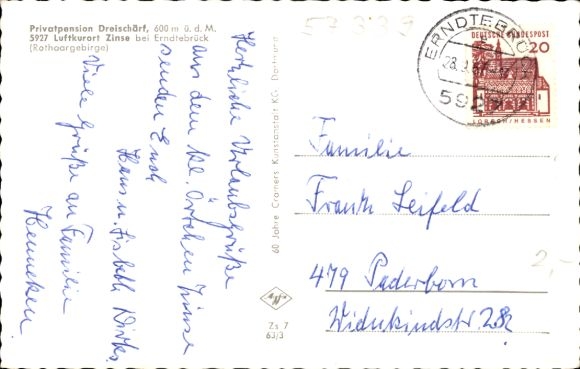 Privatpension Dreischärf, 600 m ü. d. M.
5927 Luftkurort Zinse bei Erndtebrück
(Rothaargebirge)
57339
Herzliche Urlaubsgrüße
aus dem kl. Örtchen Zinse
senden Euch
Hans u. Lisbeth Dirks
Viele Grüße an Familie
Henneken
60 Jahre Cramers Kunstanstalt KG · Dortmund
Zs 7
63/3
ERNDTEBRÜCK
28.
592
DEUTSCHE BUNDESPOST
20
LORSCH/HESSEN
Familie
Frank Leifeld
479 Paderborn
Widukindstr. 28
2,-